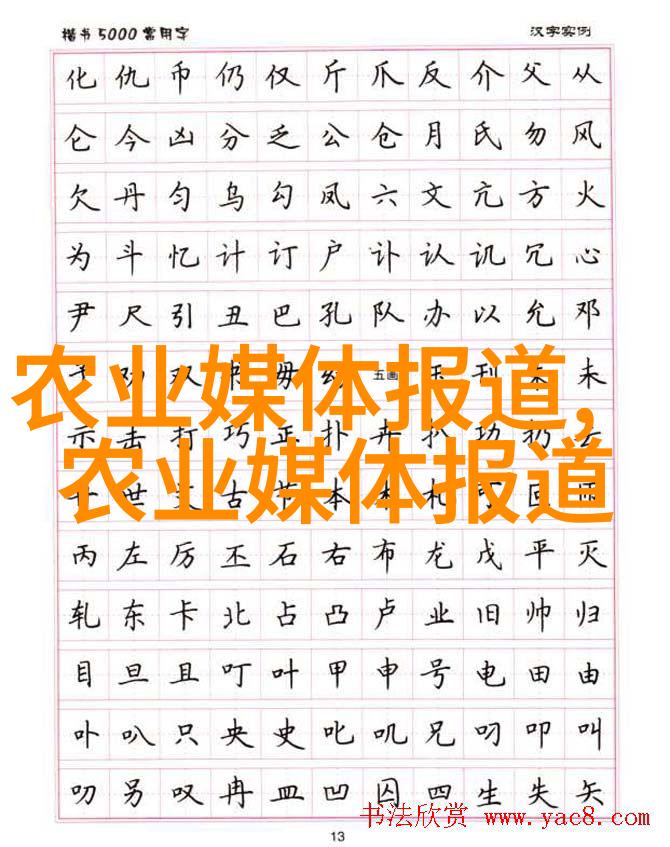 楷书5000常用字
汉字实例
化仇币仍仅斤爪反介父从
仑今凶分乏公仓月氏勿风
欠丹匀乌勾凤六文亢方火
为斗忆计订户讣认讥冗心
尹尺引丑巴孔队办以允邓
双 毋 五画 刊 未
农业媒体报道,
示击打巧正扑卉扒功扔去
农业媒体报道
世 古节本 札可
丙左厉丕石右布龙戊平灭
轧东卡北占凸卢业旧帅归
目旦且叮叶甲申号电田由
卟叭只央史叱叽兄叼叩叫
叻另叹冉皿凹囚四生失矢
书法欣赏 www.yac8.com
13